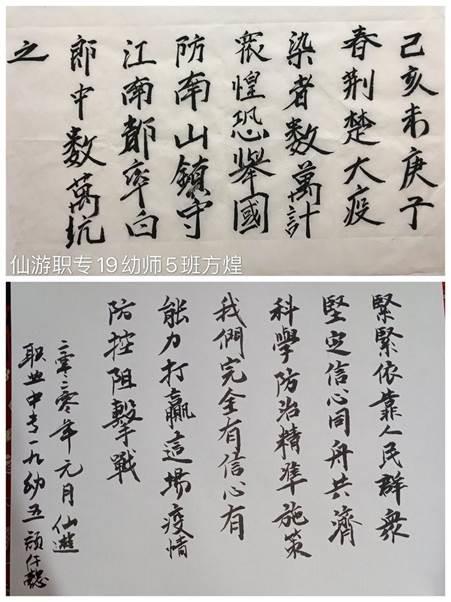 己亥末庚子
春荆楚大疫
染者數萬計
衆惶恐舉國
防南山鎮守
江南都率白
郎中数萬抗
之
仙游职专19幼师5班方煌
緊緊依靠人民群衆
堅定信心同舟共濟
科學防治精準施策
我們完全有信心有
能力打贏這場疫情
防控阻擊戰
二零二零年元月仙遊
职业中专一九幼五